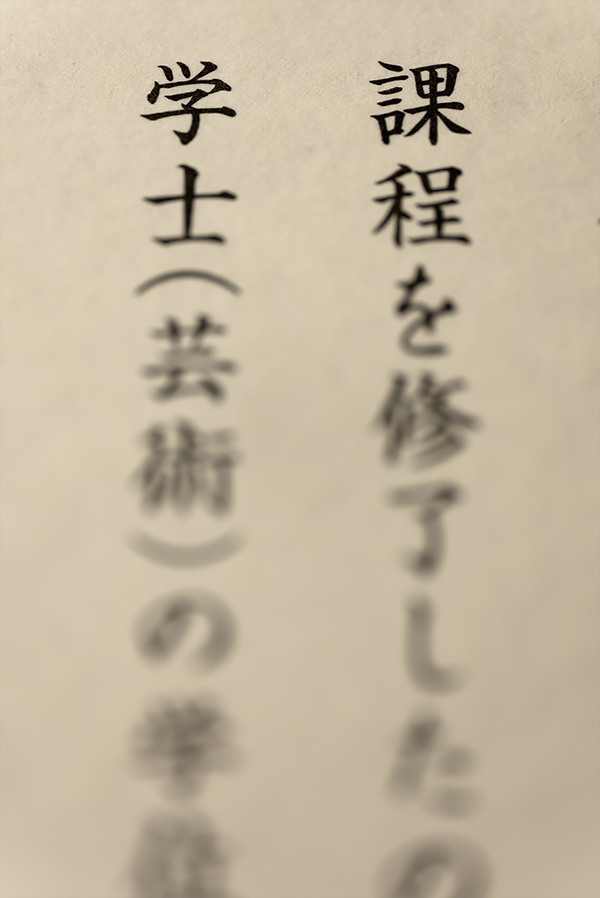 課程を修了したの
学士(芸術)の学